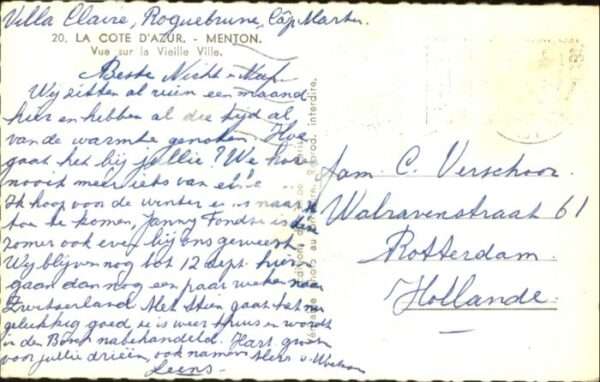 Villa Claire, Roquebrune, Cap Martin.
20. LA COTE D'AZUR. - MENTON.
Vue sur la Vieille Ville.
Beste Nicht &
Wij zitten al ruim een maand
hier en hebben al die tijd al
van de warmte genoten. Hoe
gaat het bij jullie? We horen
nooit meer iets van
Ik hoop voor de winter naar
toe te komen, Janny is deze
zomer ook even bij ons geweest
Wij blijven nog tot 12 sept. hier
gaan dan nog een paar weken naar
Zwitserland. Met Stien gaat het nu
gelukkig goed, ze is weer thuis en wordt
in den Bosch nabehandeld. Hart. groeten
voor jullie drieën, ook namens
Leens -
Fam. C. Verschoor.
Walravenstraat 61
Rotterdam.
Hollande.